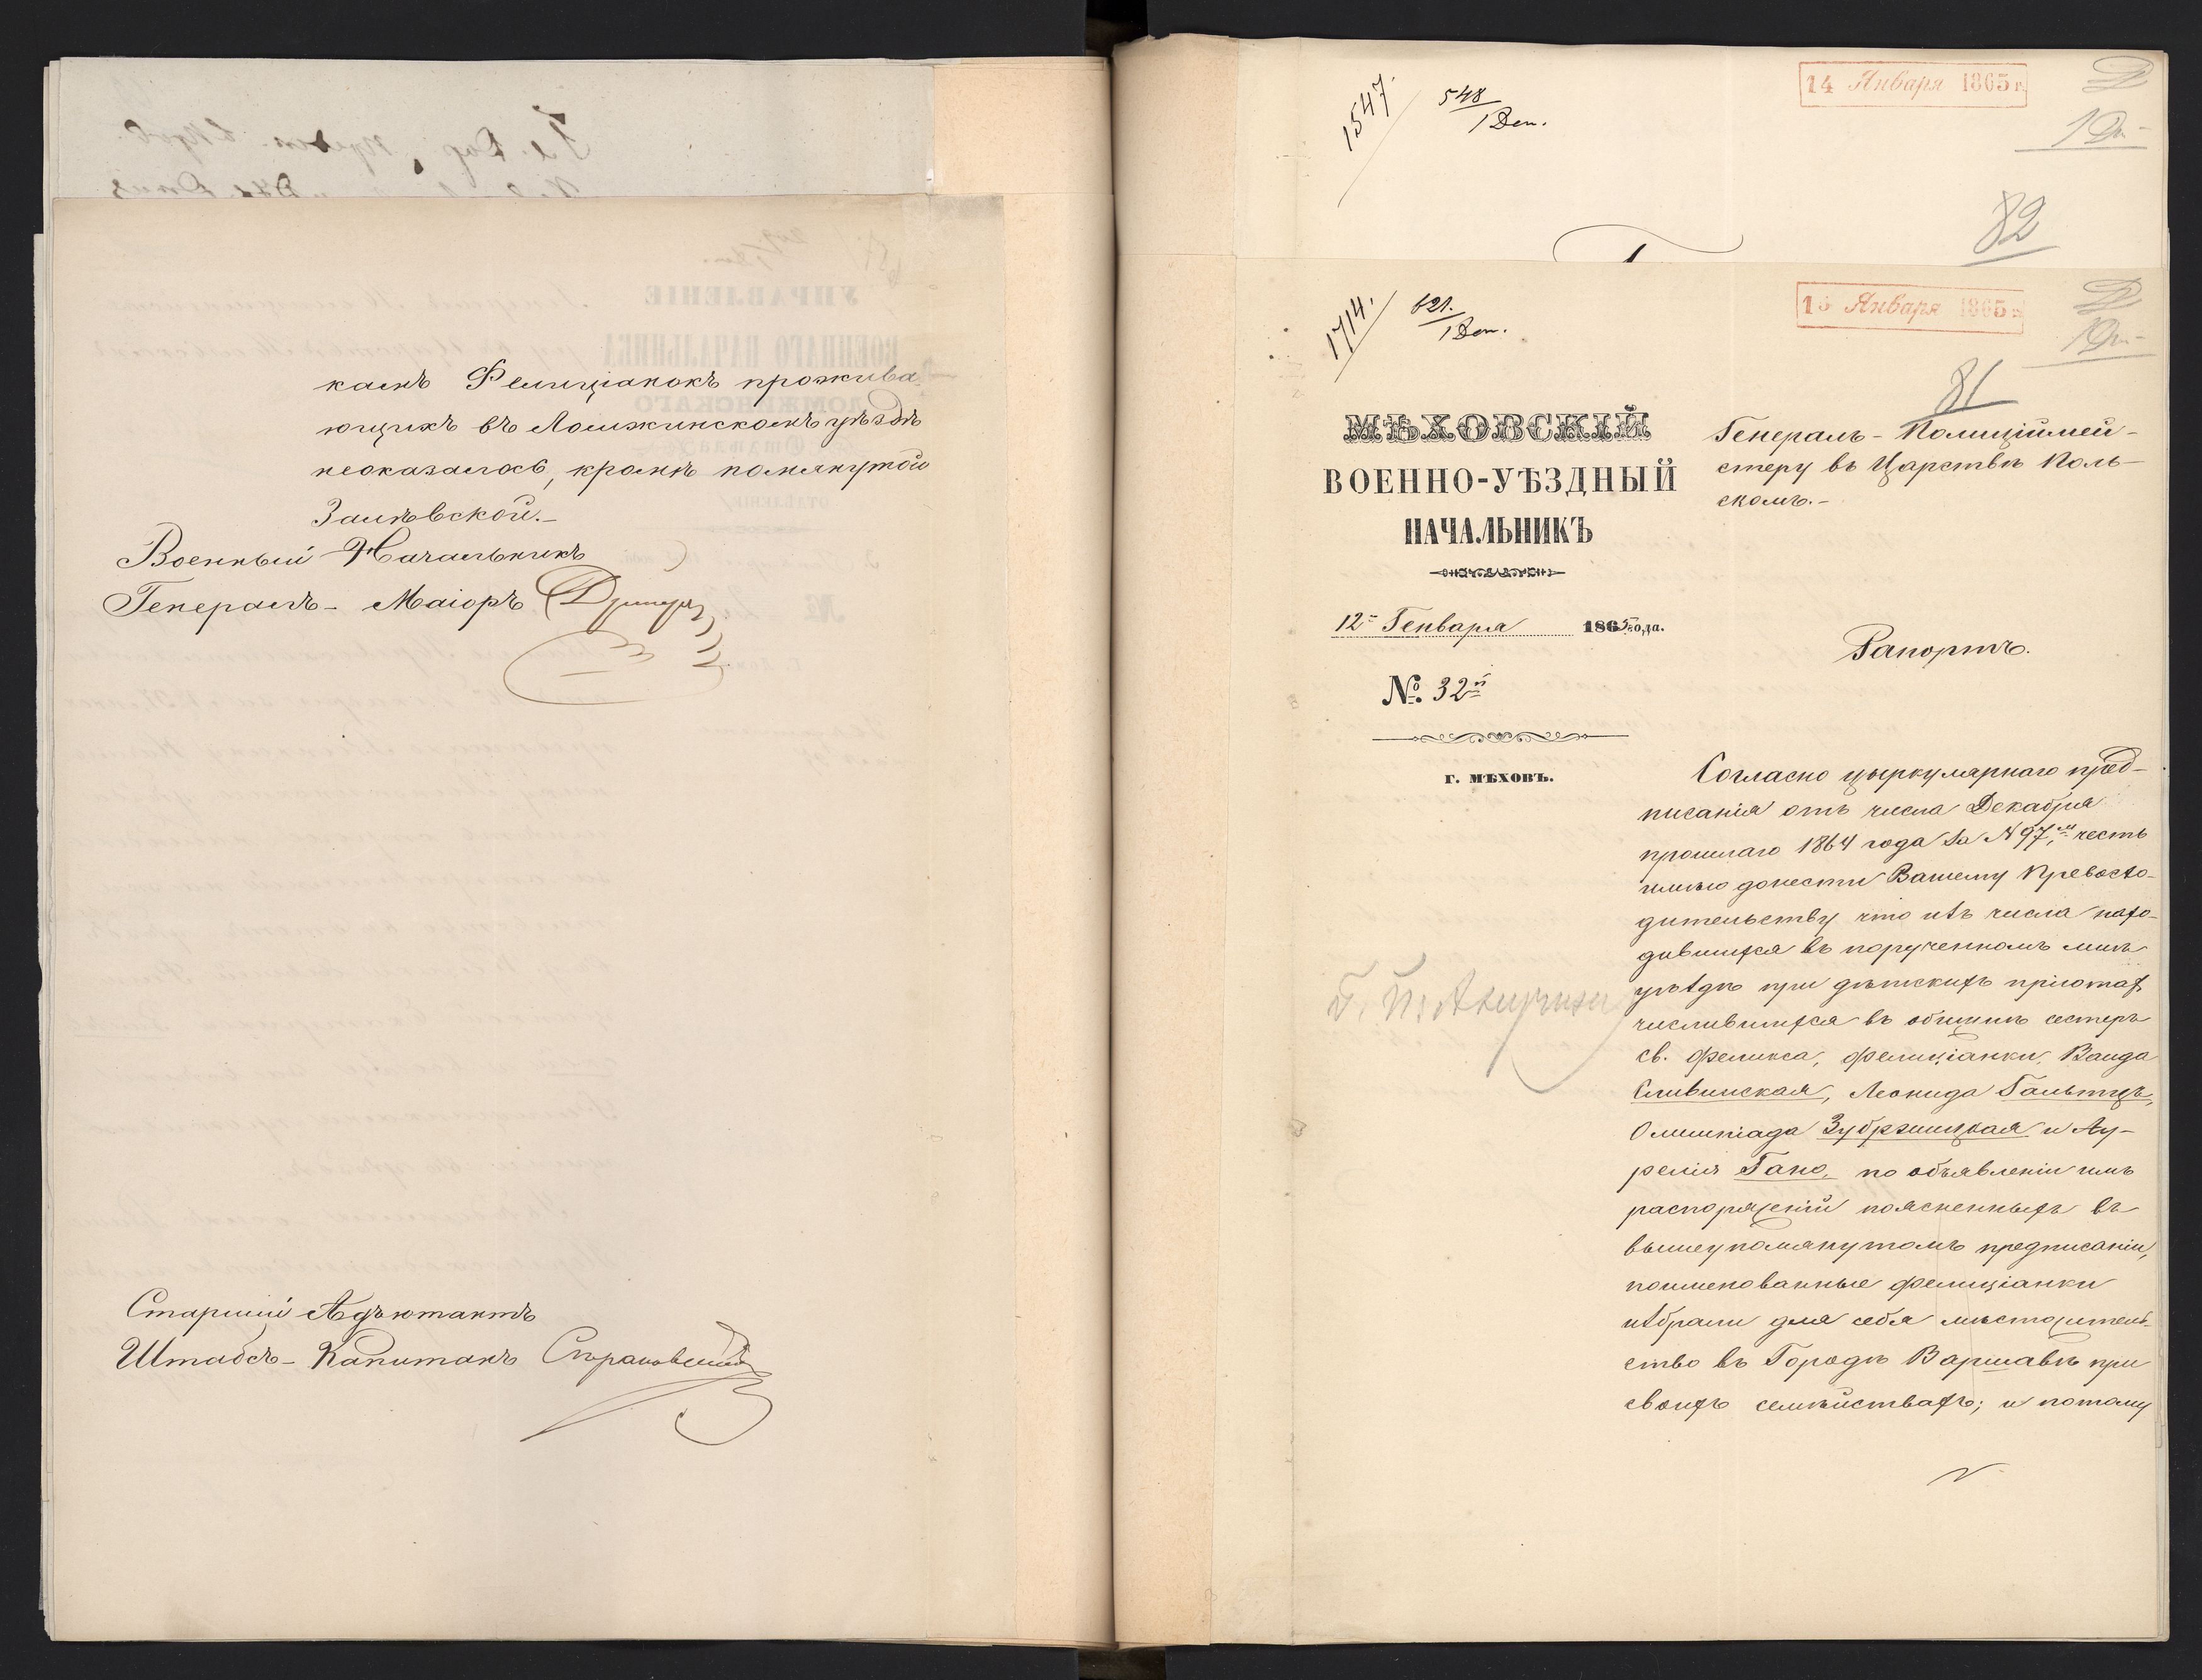 камъ Фелиціанокъ прожива
ющихъ въ Ломжинскомъ уѣздѣ
неоказалось, кромѣ помянутой
Залѣвской.-
Военный Начальникъ
Генералъ- Маіоръ
Старшій Адъютантъ
Штабсъ- Капитанъ
1547.
548
1 Деп.
14 Января 1865 г.
82
1714.
621.
1 Деп.
15 Января 1865 г.
81
МѢХОВСКІЙ
ВОЕННО-УѢЗДНЫЙ
НАЧАЛЬНИКЪ
12го Генваря 1865 года.
№ 32й
г. МѢХОВЪ.
Генералъ- Полиціймей-
стеру въ Царствѣ Поль-
скомъ.-
Рапортъ.
Согласно цыркулярнаго пред-
писанія отъ числа Декабря
прошлаго 1864 года за N 97, честь
имѣю донести Вашему Превосхо-
дительству что изъ числа нахо-
дившихся въ порученномъ мнѣ
уѣздѣ при дѣтскихъ пріютах
числившихся въ общинѣ сестеръ
св. Феликса, фелиціанки, Ванда
Сливинская, Леонида Гальтцъ,
Олимпіада Зубржицкая и Ау-
релія Гано, по объявленіи имъ
распоряженій поясненныхъ въ
вышеупомянутомъ предписаніи,
поименованные фелиціанки
избрали для себя мѣстожитель-
ство въ Городѣ Варшавѣ при
своихъ семѣйствахъ; и потому